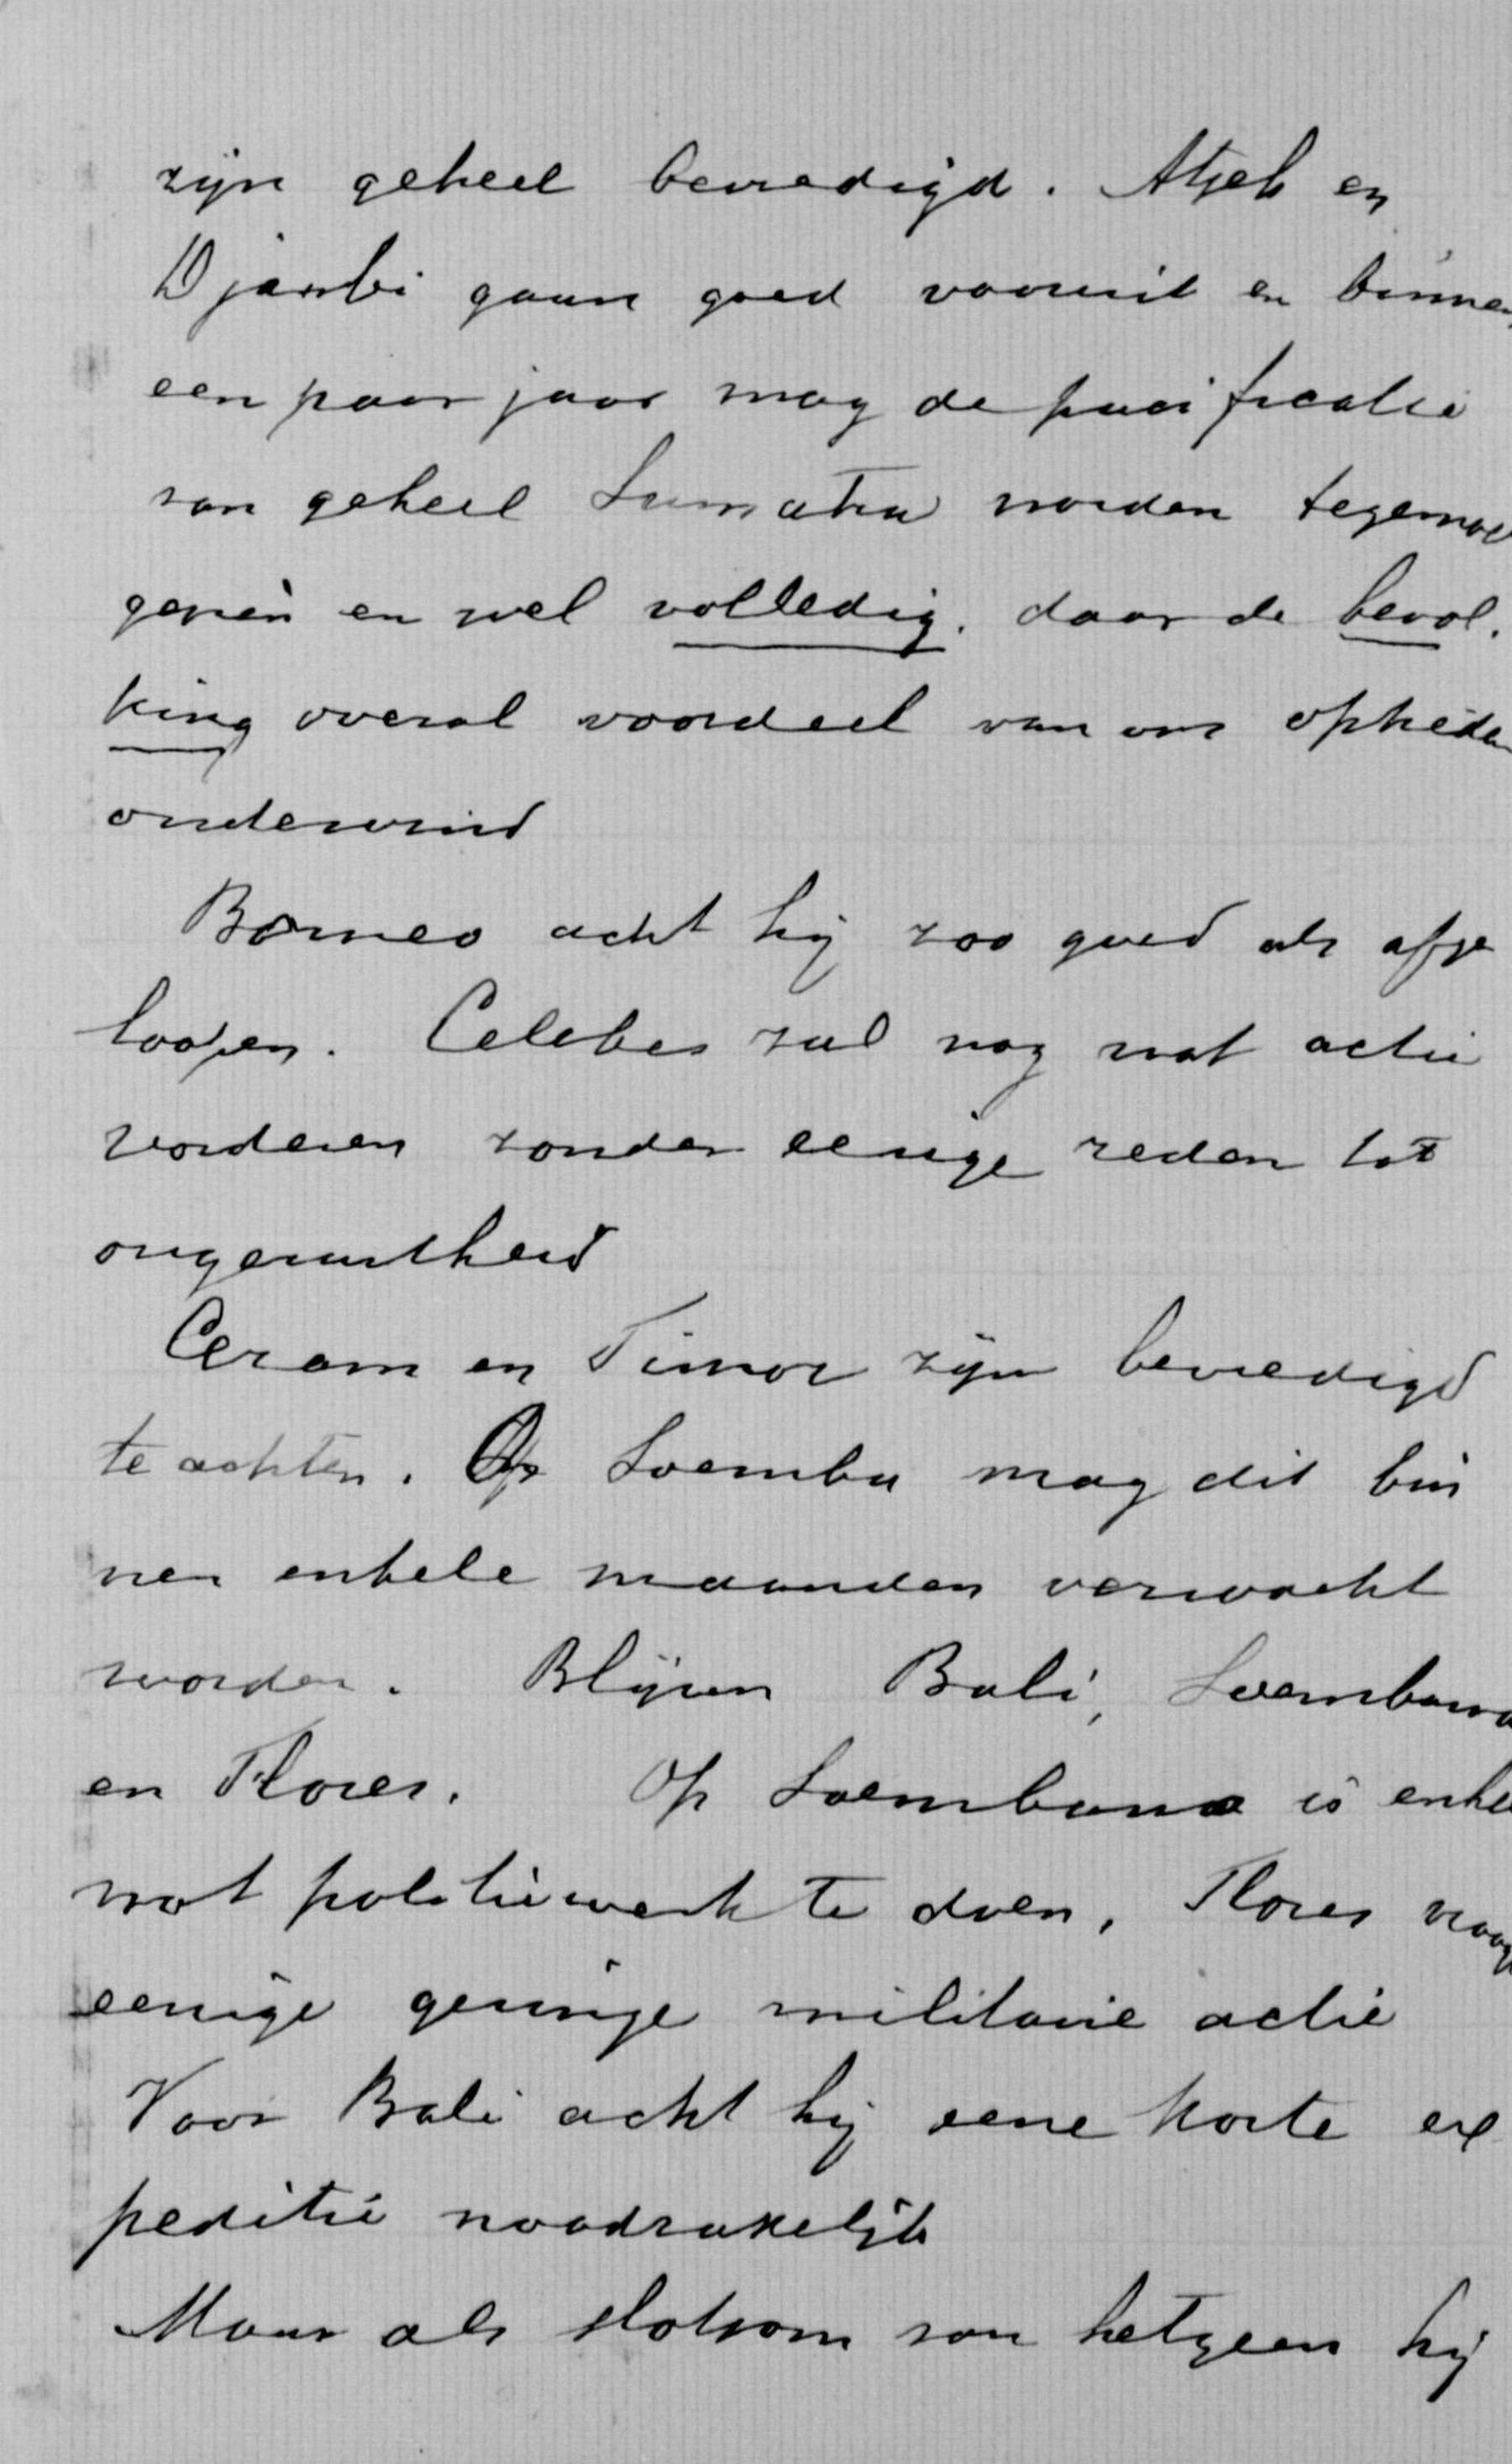 zijn geheel bevredigd. Atjeh en
Djambi gaan goed vooruit en binnen
een paar jaar mag de pacificatie
van geheel Sumatra worden tegemoe
gezien en wel volledig. daar de bevol.
king overal voordeel van ons optreden
ondervind
Borneo acht hij zoo goed als afge
loopen. Celebes zal nog wat actie
vorderen zonder eenige reden tot
ongerustheid
Ceram en Timor zijn bevredigd
te achten. Op Soemba mag dit bin
nen enkele maanden verwacht
worden. Blijven Bali, Soembawa
en Flores. Op Soembawa is enkel
wat politiewerk te doen, Flores vraagt
eenige geringe militaire actie
Voor Bali acht hij eene korte ex
peditie noodzakelijk
Maar als slotsom van hetgeen hij